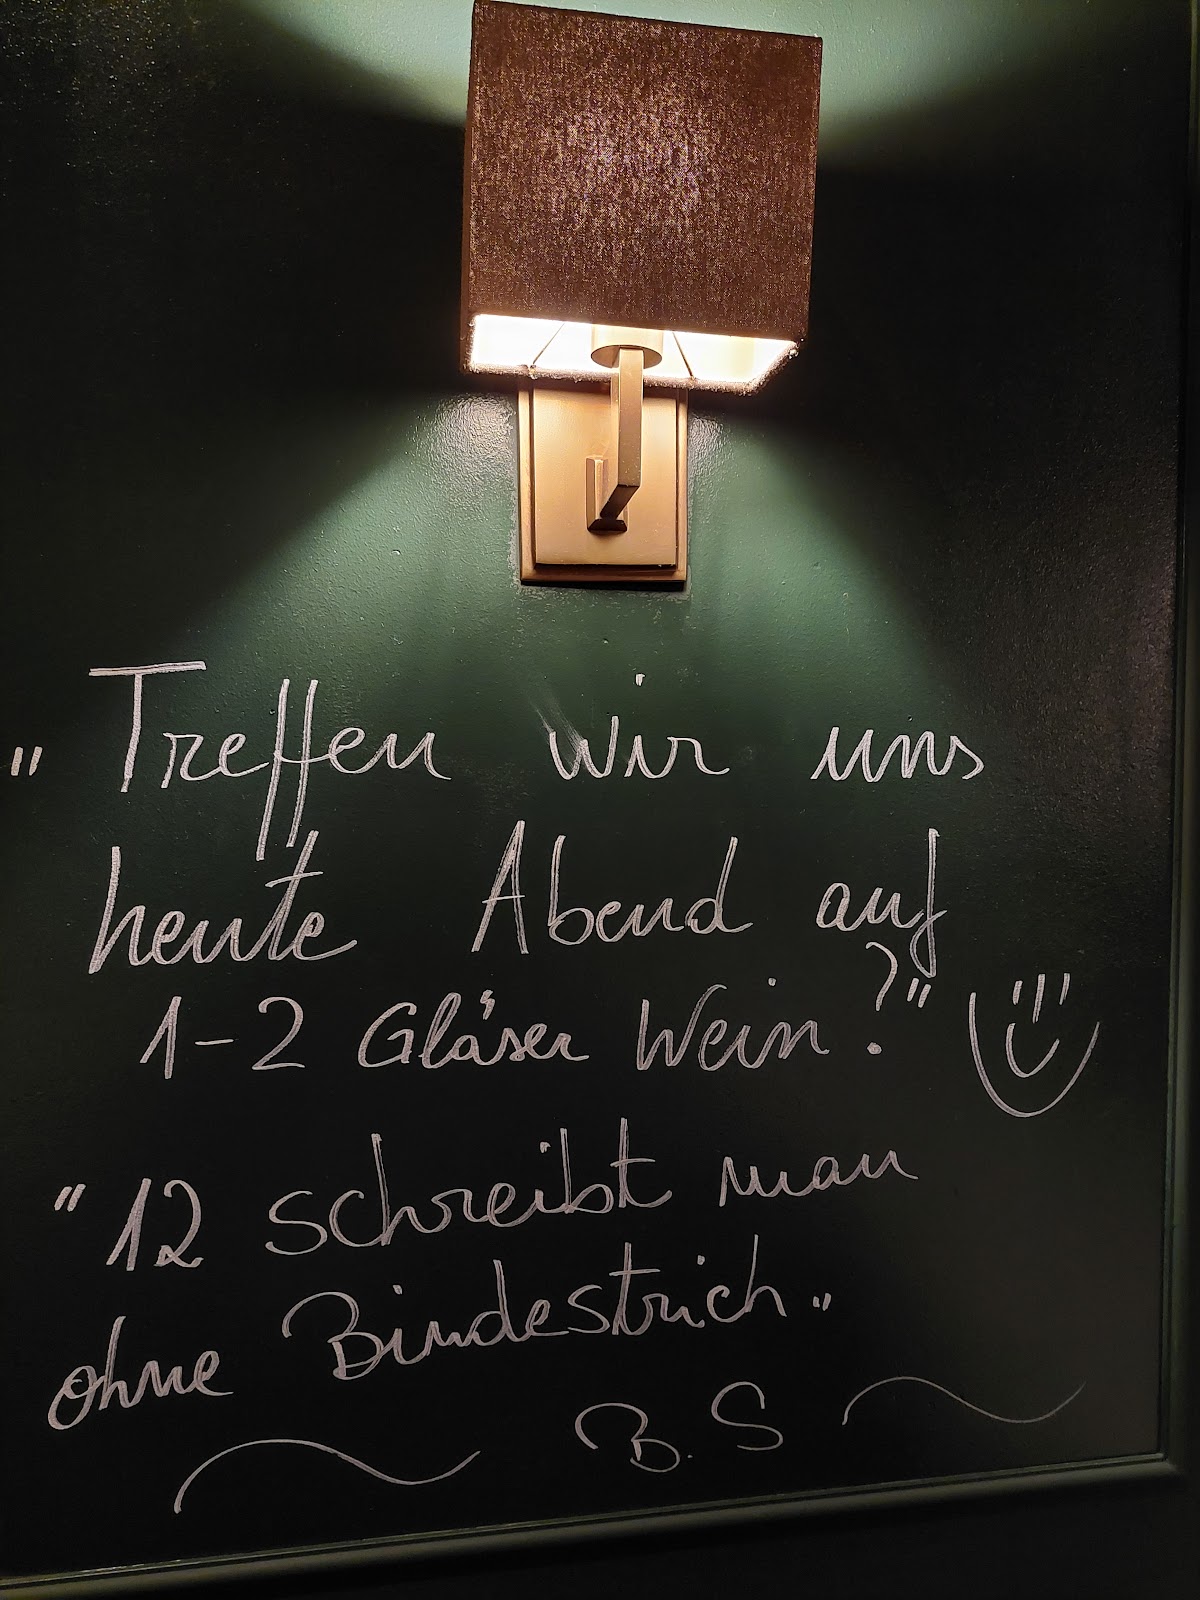 "Treffen wir uns
heute Abend auf
1-2 Gläser Wein?"
"12 schreibt man
ohne Bindestrich"
B.S